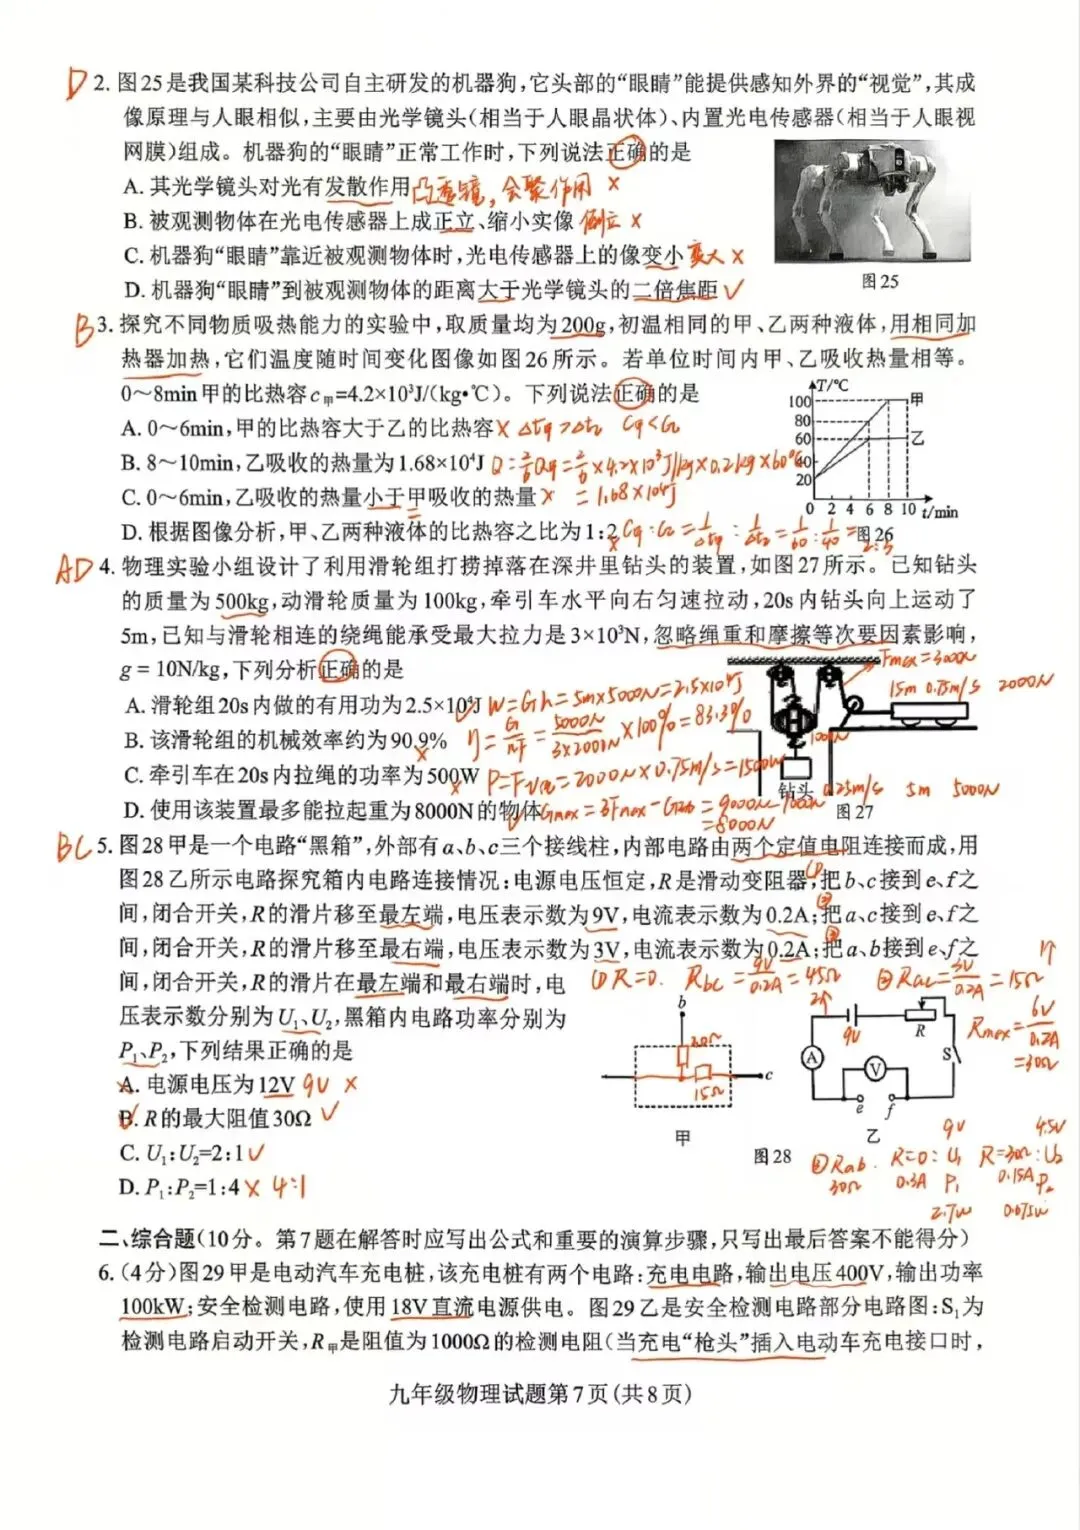 D 2. 图25是我国某科技公司自主研发的机器狗,它头部的“眼睛”能提供感知外界的“视觉”,其成
像原理与人眼相似,主要由光学镜头(相当于人眼晶状体)、内置光电传感器(相当于人眼视
网膜)组成。机器狗的“眼睛”正常工作时,下列说法正确的是
A. 其光学镜头对光有发散作用 凸透镜,会聚作用 ×
B. 被观测物体在光电传感器上成正立、缩小实像 倒立 ×
C. 机器狗“眼睛”靠近被观测物体时,光电传感器上的像变小 变大 ×
图25
D. 机器狗“眼睛”到被观测物体的距离大于光学镜头的二倍焦距 ✓
B 3. 探究不同物质吸热能力的实验中,取质量均为200g,初温相同的甲、乙两种液体,用相同加
热器加热,它们温度随时间变化图像如图26所示。若单位时间内甲、乙吸收热量相等。
0～8min甲的比热容c甲=4.2×10³J/(kg•℃)。下列说法正确的是
A. 0～6min,甲的比热容大于乙的比热容 × Δt甲>Δt乙 C甲<C乙
B. 8～10min,乙吸收的热量为1.68×10⁴J Q=2/6Q甲=2/6×4.2×10³J/kg×0.2kg×60℃
C. 0～6min,乙吸收的热量小于甲吸收的热量 × =1.68×10⁴J
D. 根据图像分析,甲、乙两种液体的比热容之比为1:2 × C甲:C乙=1/Δt甲:1/Δt乙=1/60:1/40=2:3
T/℃
100
80
60
40
20
0 2 4 6 8 10 t/min
甲
乙
图26
AD 4. 物理实验小组设计了利用滑轮组打捞掉落在深井里钻头的装置,如图27所示。已知钻头
的质量为500kg,动滑轮质量为100kg,牵引车水平向右匀速拉动,20s内钻头向上运动了
5m,已知与滑轮相连的绕绳能承受最大拉力是3×10³N,忽略绳重和摩擦等次要因素影响,
g = 10N/kg,下列分析正确的是
A. 滑轮组20s内做的有用功为2.5×10⁴J ✓ W=Gh=5m×5000N=2.5×10⁴J
B. 该滑轮组的机械效率约为90.9% × η=G/nF=5000N/3×2000N×100%=83.3%
C. 牵引车在20s内拉绳的功率为500W × P=Fv=2000N×0.75m/s=1500W
D. 使用该装置最多能拉起重为8000N的物体 ✓ Gmax=3Fmax-G动=9000N-1000N
=8000N
Fmax=3000N
15m 0.75m/s 2000N
1000N
钻头 0.25m/s 5m 5000N
图27
BC 5. 图28甲是一个电路“黑箱”,外部有a、b、c三个接线柱,内部电路由两个定值电阻连接而成,用
图28乙所示电路探究箱内电路连接情况:电源电压恒定,R是滑动变阻器,①把b、c接到e、f之
间,闭合开关,R的滑片移至最左端,电压表示数为9V,电流表示数为0.2A;②把a、c接到e、f之
间,闭合开关,R的滑片移至最右端,电压表示数为3V,电流表示数为0.2A;③把a、b接到e、f之
间,闭合开关,R的滑片在最左端和最右端时,电
压表示数分别为U₁、U₂,黑箱内电路功率分别为
P₁、P₂,下列结果正确的是
A. 电源电压为12V 9V ×
B. R的最大阻值30Ω ✓
C. U₁:U₂=2:1 ✓
D. P₁:P₂=1:4 × 4:1
①R=0. Rbc=9V/0.2A=45Ω ②Rac=3V/0.2A=15Ω
Rmax=6V/0.2A
=30Ω
b
30Ω
15Ω
c
甲
9V
R
A
V
S
e
f
乙
图28
9V 4.5V
③Rab. R=0:U₁ R=30Ω:U₂
30Ω 0.3A P₁ 0.15A P₂
2.7W 0.675W
二、综合题(10分。第7题在解答时应写出公式和重要的演算步骤,只写出最后答案不能得分)
6. (4分)图29甲是电动汽车充电桩,该充电桩有两个电路:充电电路,输出电压400V,输出功率
100kW;安全检测电路,使用18V直流电源供电。图29乙是安全检测电路部分电路图:S₁为
检测电路启动开关,R甲是阻值为1000Ω的检测电阻(当充电“枪头”插入电动车充电接口时,
九年级物理试题第7页(共8页)